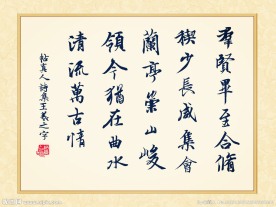 羣賢畢至合脩
禊少長咸集會
蘭亭崇山峻
領今猶在曲水
清流萬古情
帖真人詩集王羲之字